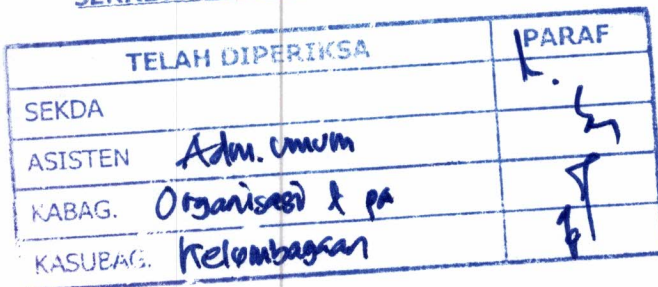 TELAH DIPERIKSA PARAF
SEKDA
ASISTEN Adm. Umum
KABAG. Organisasi & pa
KASUBAG. Kelembagaan